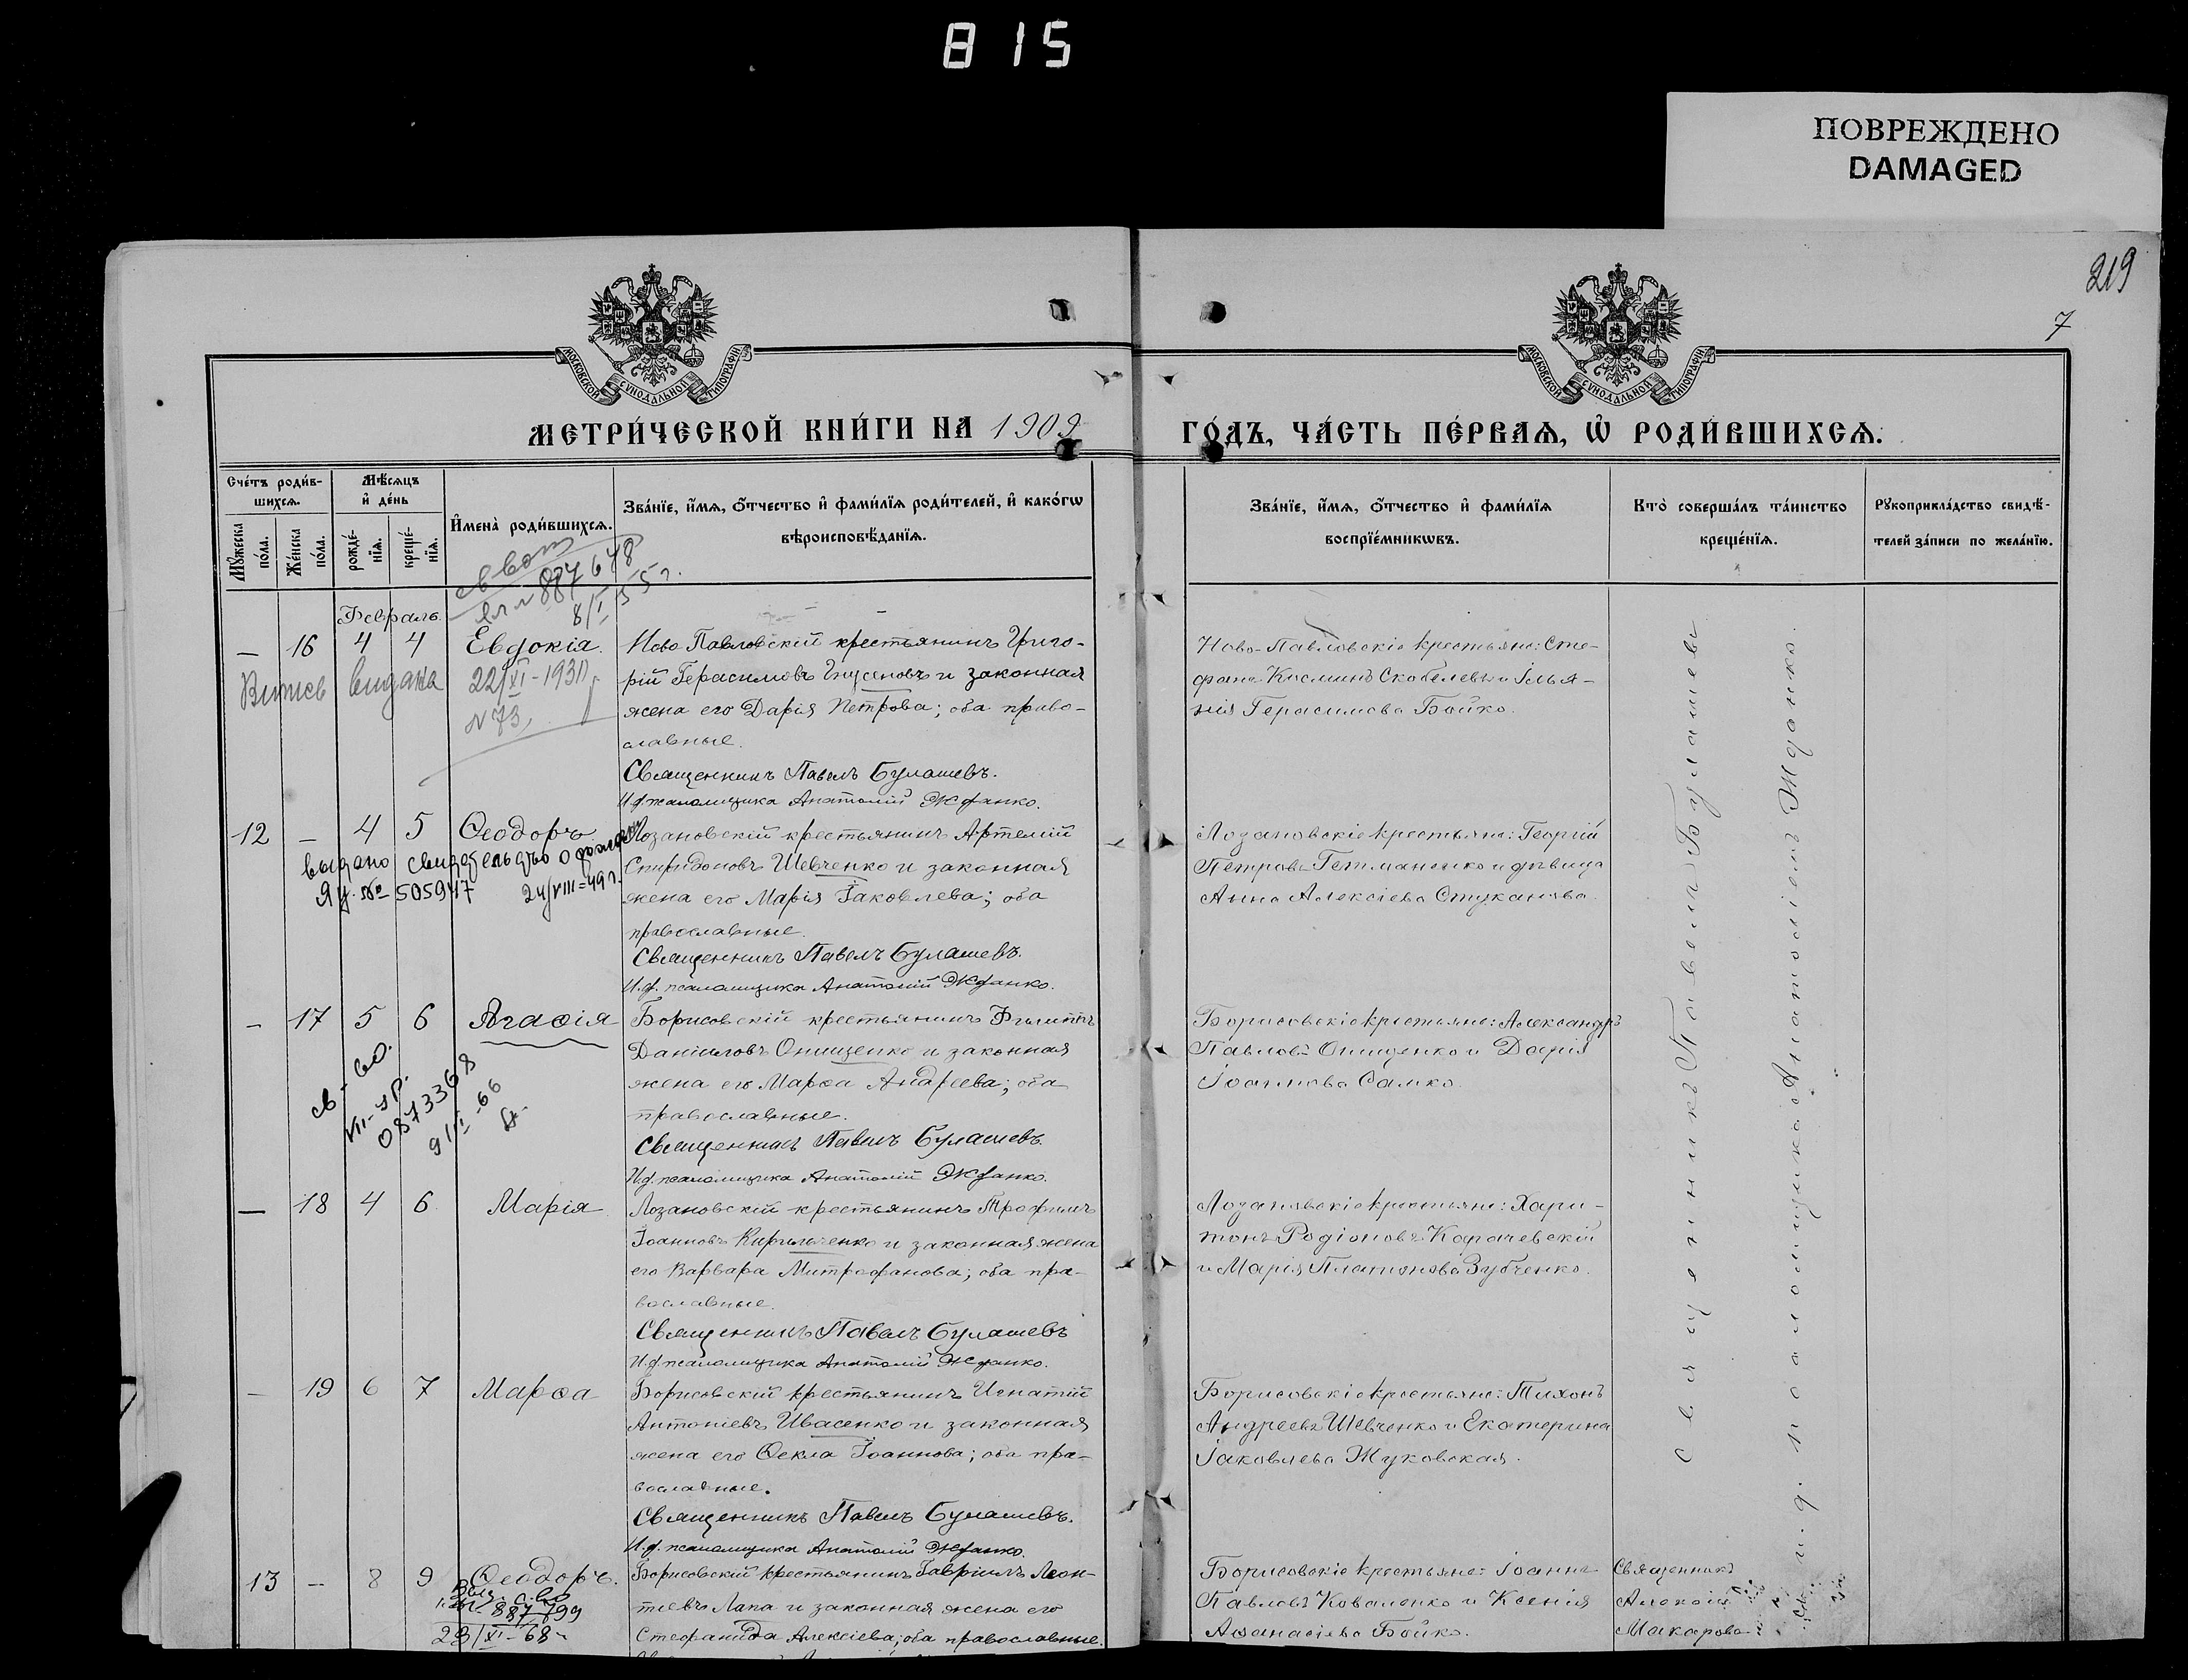 815
ПОВРЕЖДЕНО
DAMAGED
219
7
МОСКОВСКОЙ СѴНОДАЛЬНОЙ ТИПОГРАФІИ
МОСКОВСКОЙ СѴНОДАЛЬНОЙ ТИПОГРАФІИ
МЕТРИ́ЧЕСКОЙ КНИ́ГИ НА 1909
ГО́ДЪ, ЧА́СТЬ ПЕ́РВАѦ, Ѽ РОДИ́ВШИХСѦ.
Счéтъ роди́в-
шихсѧ.
Мꙋ́жеска
по́ла.
Же́нска
по́ла.
Мѣ́сѧцъ
и҆ де́нь
рожде́-
нїѧ.
креще́-
нїѧ.
И҆мена̀ роди́вшихсѧ.
Зва́нїе, и҆́мѧ, ѻ҆́тчество и҆ фами́лїѧ роди́телей, и҆ како́гѡ
вѣроисповѣ́данїѧ.
Зва́нїе, и҆́мѧ, ѻ҆́тчество и҆ фами́лїѧ
воспрїе́мникѡвъ.
Кто̀ соверша́лъ та́инство
креще́нїѧ.
Рꙋкоприкла́дство свидѣ́-
телей за́писи по жела́нїю.
св-во
№ 887648
8/I 55 г.
Февраль.
— 16 4 4 Евдокія.
Витяг видана 22/XI-1931
N 73
Ново-Павловскій крестьянинъ Григо-
рій Герасимовъ и законная
жена его Дарія Петрова; оба право-
славные.
Священникъ Павелъ Булашевъ.
И.д. псаломщика Анатолій Жданко.
Ново-Павловскіе крестьяне: Сте-
фанъ Косминъ Скобелевъ и Іулья-
нія Герасимова Бойко.
12 — 4 5 Ѳеодоръ
выдано свидетельство о рожден
ЯУ № 505947 24/VIII-49 г.
Лозановскій крестьянинъ Артемій
Спиридоновъ Шевченко и законная
жена его Марія Іаковлева; оба
православные.
Священникъ Павелъ Булашевъ.
И.д. псаломщика Анатолій Жданко.
Лозановскіе крестьяне: Георгій
Петровъ Гетманенко и дѣвица
Анна Алексіева Стуканова.
— 17 5 6 Агаѳія
св-во.
VII-УР.
0873368
9/II-66
Борисовскій крестьянинъ Филиппъ
Даніиловъ Онищенко и законная
жена его Марѳа Андреева; оба
православные.
Священникъ Павелъ Булашевъ.
И.д. псаломщика Анатолій Жданко.
Борисовскіе крестьяне: Александръ
Павловъ Онищенко и Дарія
Іоаннова Самко.
— 18 4 6 Марія
Лозановскій крестьянинъ Трофимъ
Іоанновъ Кирильченко и законная жена
его Варвара Митрофанова; оба пра-
вославные.
Священникъ Павелъ Булашевъ
И.д. псаломщика Анатолій Жданко.
Лозановскіе крестьяне: Хари-
тонъ Родіоновъ Карачевскій
и Марія Платонова Зубченко.
— 19 6 7 Марѳа
Борисовскій крестьянинъ Игнатій
Антоніевъ Ивасенко и законная
жена его Ѳекла Іоаннова; оба пра-
вославные.
Священникъ Павелъ Булашевъ.
И.д. псаломщика Анатолій Жданко.
Борисовскіе крестьяне: Тихонъ
Андреевъ Шевченко и Екатерина
Іаковлева Жуковская.
13 — 8 9 Ѳеодоръ.
887799
23/XI-68
Борисовскій крестьянинъ Гавріилъ Леон-
тіевъ Лапа и законная жена его
Стефанида Алексіева; оба православные.
Борисовскіе крестьяне: Іоаннъ
Павловъ Коваленко и Ксенія
Аѳанасіева Бойко.
Священникъ Павелъ Булашевъ
и.д. псаломщика Анатолій Жданко.
Священникъ
Алексій
Макаровъ